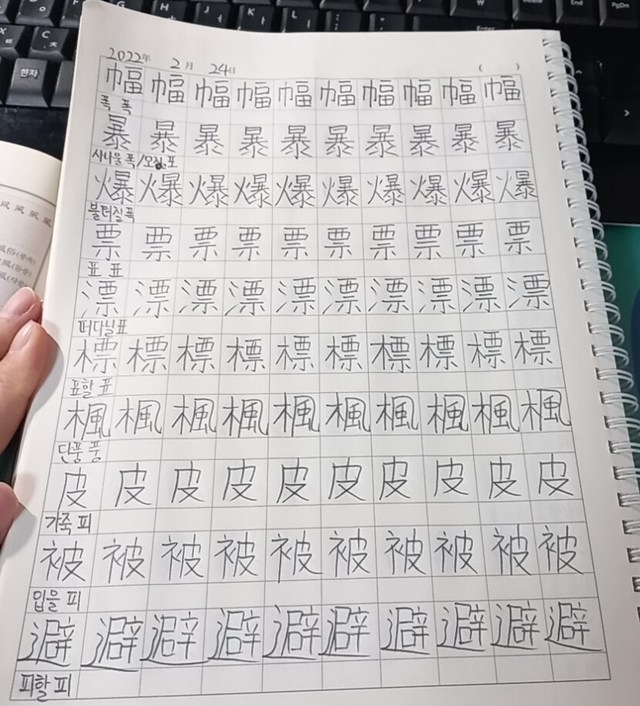 2022年 2月 24日 ( )
幅 幅 幅 幅 幅 幅 幅 幅 幅 幅
폭 폭
暴 暴 暴 暴 暴 暴 暴 暴 暴 暴
사나울 폭/모질 포
爆 爆 爆 爆 爆 爆 爆 爆 爆 爆
불터질 폭
票 票 票 票 票 票 票 票 票 票
표 표
漂 漂 漂 漂 漂 漂 漂 漂 漂 漂
떠다닐 표
標 標 標 標 標 標 標 標 標 標
표할 표
楓 楓 楓 楓 楓 楓 楓 楓 楓 楓
단풍 풍
皮 皮 皮 皮 皮 皮 皮 皮 皮 皮
가죽 피
被 被 被 被 被 被 被 被 被 被
입을 피
避 避 避 避 避 避 避 避 避 避
피할 피
한자
Enter
End
PgDn